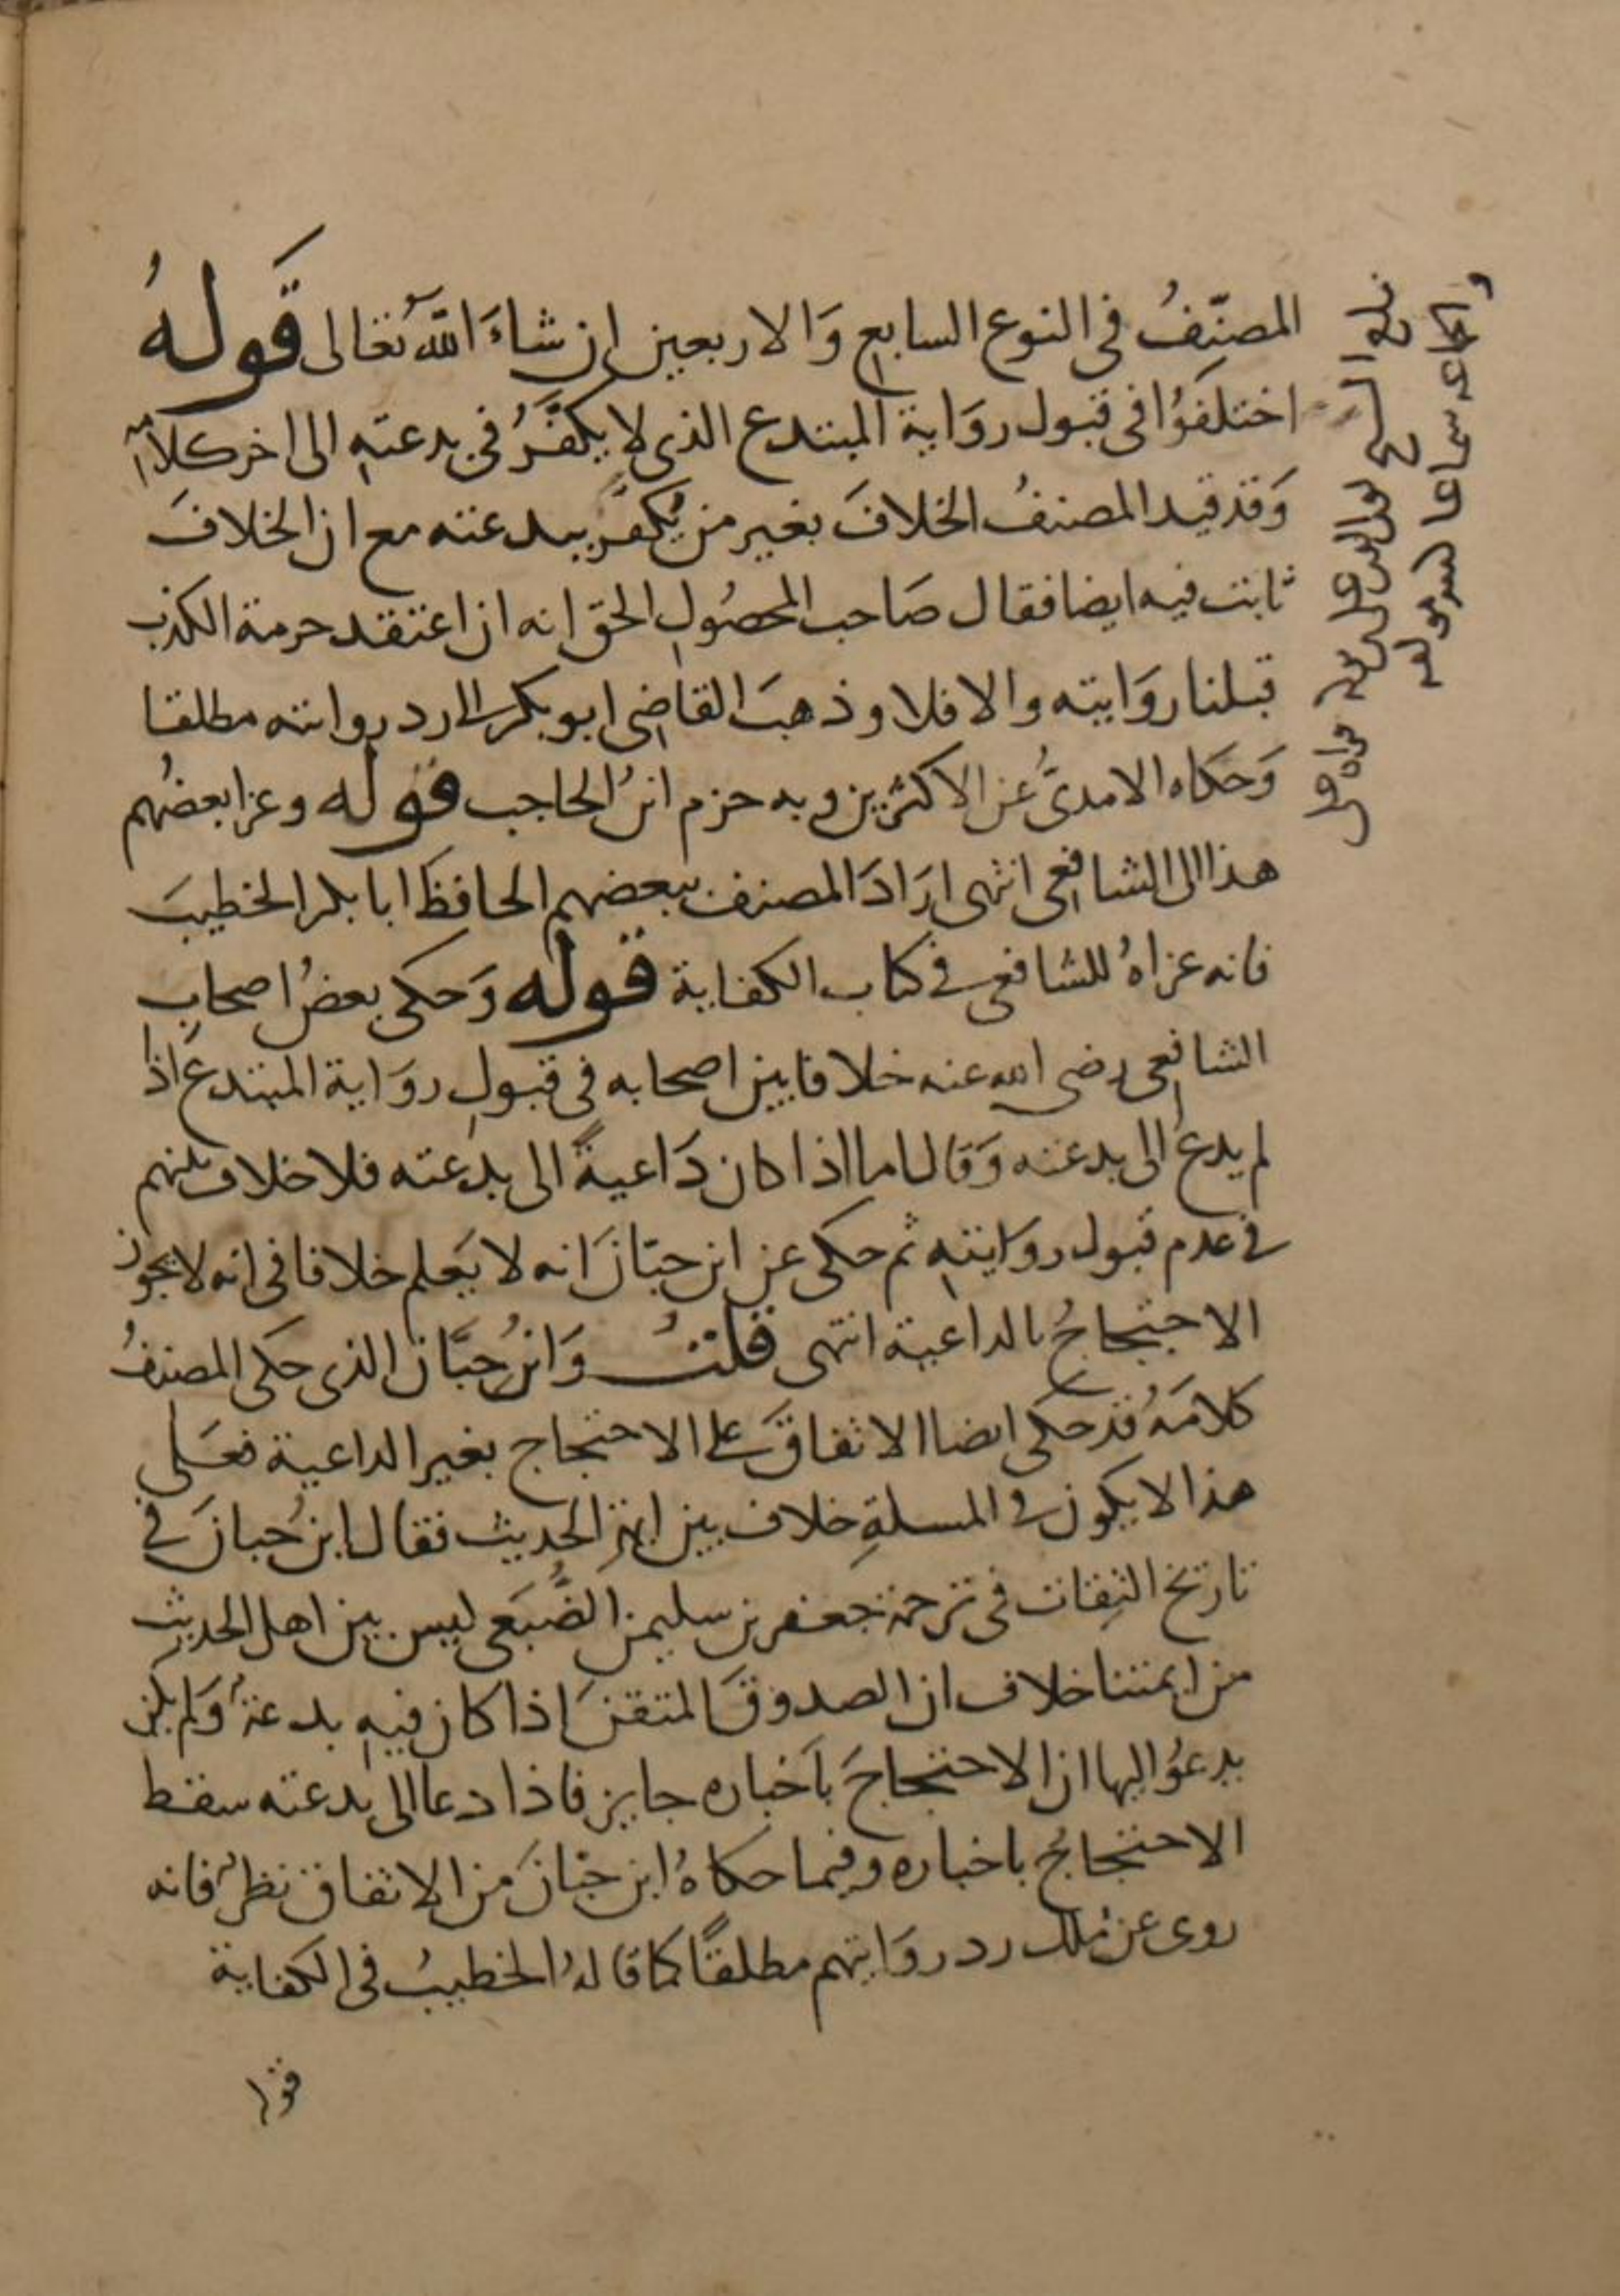 المصنِّفُ في النوع السابع وَالاربعين ان شاءَ اللّٰه تعَالى قَولهُ
اختلفوُا في قبول روَاية المبتدع الذي لا يكفَّرُ في بدعتهِ الى اخر كلامه
وَقد قيد المصنفُ الخلافَ بغير من يُكفَّر ببدعته مع ان الخلافَ
ثابت فيه ايضا فقال صَاحب المحصُولِ الحق انه ان اعتقد حرمة الكذب
قبلنا روَايته والا فلا وذهبَ القاضي ابو بكر الى رد روايته مطلقا
وَحكاه الامديُّ عن الاكثرين وبه جزم ابنُ الحاجب قوله وعزا بعضُهم
هذا الى الشافعي انتهى ارَادَ المصنف ببعضهم الحافظَ ابا بكر الخطيبَ
فانه عزاهُ للشافعي في كتاب الكفاية قوله وَحكى بعضُ اصحاب
الشافعي رضي الله عنه خلافا بين اصحابه في قبولِ روَاية المبتدع اذا
لم يدعُ الى بدعته وَقال اما اذا كان دَاعيةً الى بدعته فلا خلاف بينهم
في عدم قبول روَايتهِ ثم حكى عن ابن حبّانَ انه لا يَعلم خلافا في انه لا يجوز
الاحتجاجُ بالداعية انتهى قلتُ وَابنُ حبَّان الذي حكى المصنفُ
كلامَهُ قد حكى ايضا الاتفاقَ على الاحتجاج بغير الداعية فعَلى
هذا لا يكون في المسلةِ خلاف بين ايمة الحديث فقال ابنُ حبانَ في
تاريخ الثِقات في ترجمة جعفر بن سليمن الضُّبَعي ليس بين اهل الحديث
من ايمتنا خلاف ان الصدوقَ المتقنَ اذا كان فيهِ بدعةٌ وَلم يكن
يدعوُ اليها ان الاحتجاجَ باَخباره جايز فاذا دعا الى بدعته سقط
الاحتجاجُ باخباره وفيما حكاهُ ابن حبّانَ من الاتفاق نظرٌ فانه
روى عن ملك رد روَايتهم مطلقًا كما قالهُ الخطيبُ في الكفاية